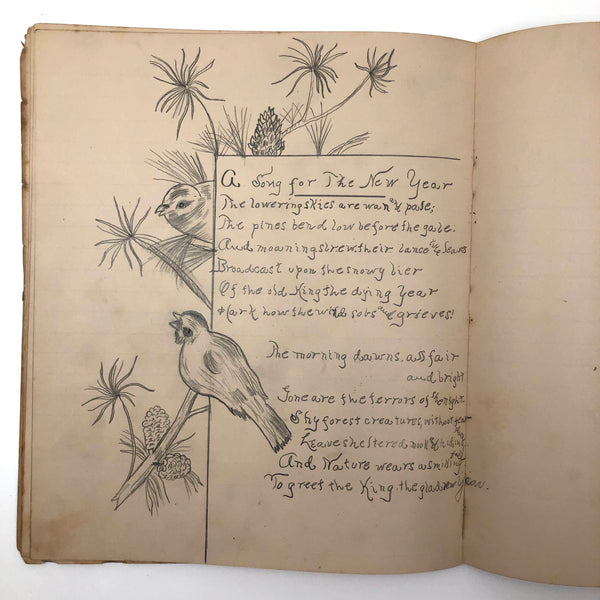 A Song for The New Year
The lowering skies are wan and pale;
The pines bend low before the gale.
And moaning strew their lance like leaves
Broadcast upon the snowy bier
Of the old King the dying Year
Hark how the wind sobs and grieves!
The morning dawns, all fair
and bright
Gone are the terrors of the night.
Shy forest creatures, without fear
Leave sheltered nook
And Nature wears a smiling
To greet the King, the glad new Year.